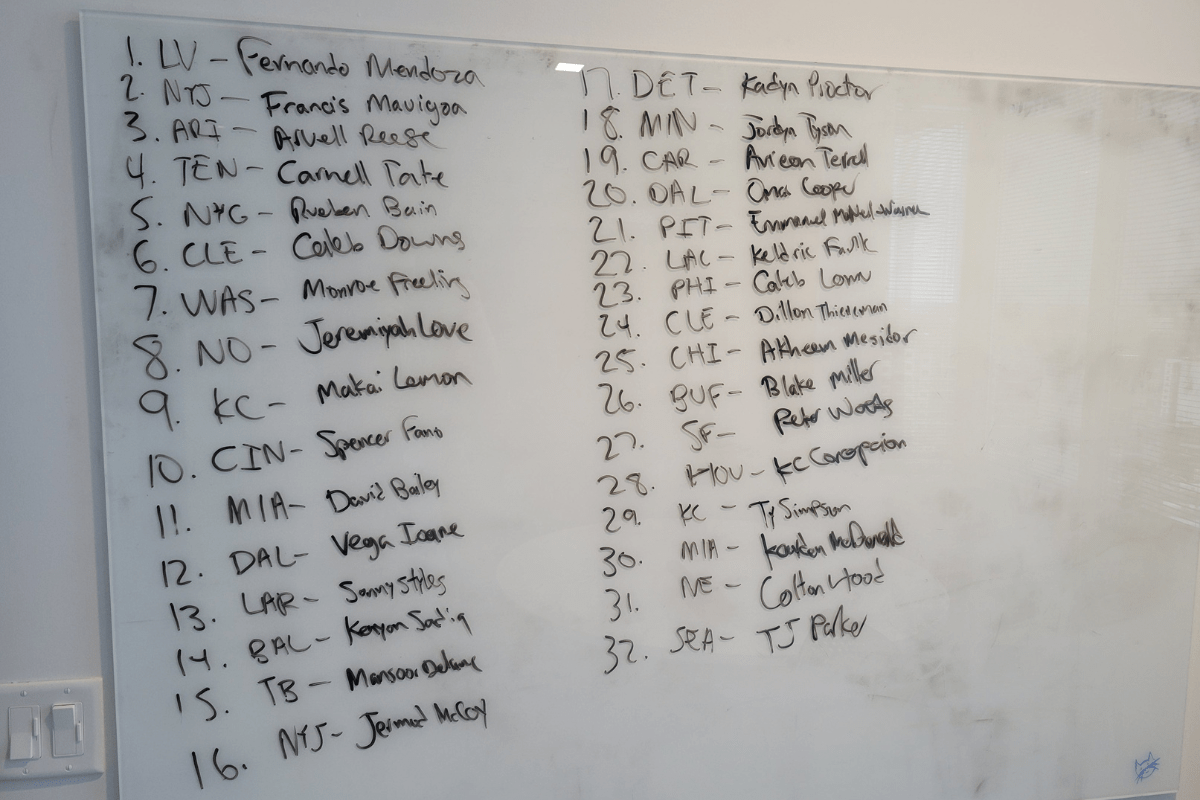 1. LV - Fernando Mendoza
2. NYJ - Francis Mauigoa
3. ARI - Arvell Reese
4. TEN - Carnell Tate
5. NYG - Rueben Bain
6. CLE - Caleb Downs
7. WAS - Monroe Freeling
8. NO - Jeremiyah Love
9. KC - Makai Lemon
10. CIN - Spencer Fano
11. MIA - David Bailey
12. DAL - Vega Ioane
13. LAR - Sonny Styles
14. BAL - Kenyon Sadiq
15. TB - Mansoor Delane
16. NYJ - Jermod McCoy
17. DET - Kadyn Proctor
18. MIN - Jordyn Tyson
19. CAR - Avieon Terrell
20. DAL - Omar Cooper
21. PIT - Emmanuel
22. LAC - Keldric Faulk
23. PHI - Caleb Lomu
24. CLE - Dillon Thieneman
25. CHI - Akheem Mesidor
26. BUF - Blake Miller
27. SF - Peter Woods
28. HOU - KC Concepcion
29. KC - Ty Simpson
30. MIA - McDonald
31. NE - Colton Hood
32. SEA - TJ Parker